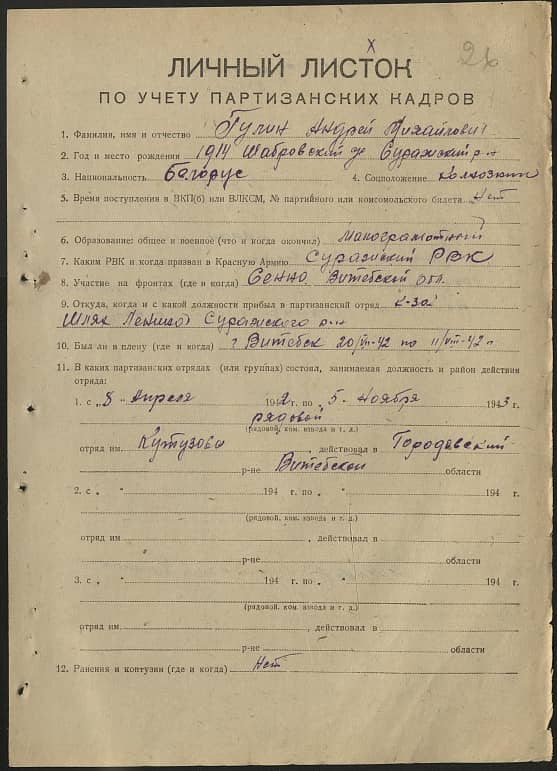 26
ЛИЧНЫЙ ЛИСТОК
ПО УЧЕТУ ПАРТИЗАНСКИХ КАДРОВ
1. Фамилия, имя и отчество Гулин Андрей Михайлович
2. Год и место рождения 1914 Шабровский Суражский р-н
3. Национальность Белорус 4. Соцположение колхозник
5. Время поступления в ВКП(б) или ВЛКСМ, № партийного или комсомольского билета Нет
6. Образование: общее и военное (что и когда окончил) Малограмотный
7. Каким РВК и когда призван в Красную Армию Суражский РВК
8. Участие на фронтах (где и когда) Сенно Витебской обл.
9. Откуда, когда и с какой должности прибыл в партизанский отряд к-за
Шлях Ленина Суражского р-н
10. Был ли в плену (где и когда) г Витебск 20/VII-42 по 11/VIII-42 г
11. В каких партизанских отрядах (или группах) состоял, занимаемая должность и район действия
отряда:
1. с „8 Апреля 1942 г. по 5. Ноября 1943 г.
рядовой
(рядовой, ком. взвода и т. д.)
отряд им. Кутузова, действовал в Городокский
р-не Витебской области
2. с „ “ 194 г. по „ “ 194 г.
(рядовой, ком. взвода и т. д.)
отряд им. , действовал в
р-не области
3. с „ “ 194 г. по „ “ 194 г.
(рядовой, ком. взвода и т. д.)
отряд им. , действовал в
р-не области
12. Ранения и контузии (где и когда) Нет